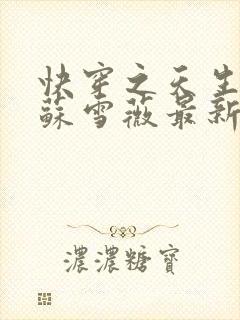 快穿之天生
蘇雪薇最新
濃濃糖寶